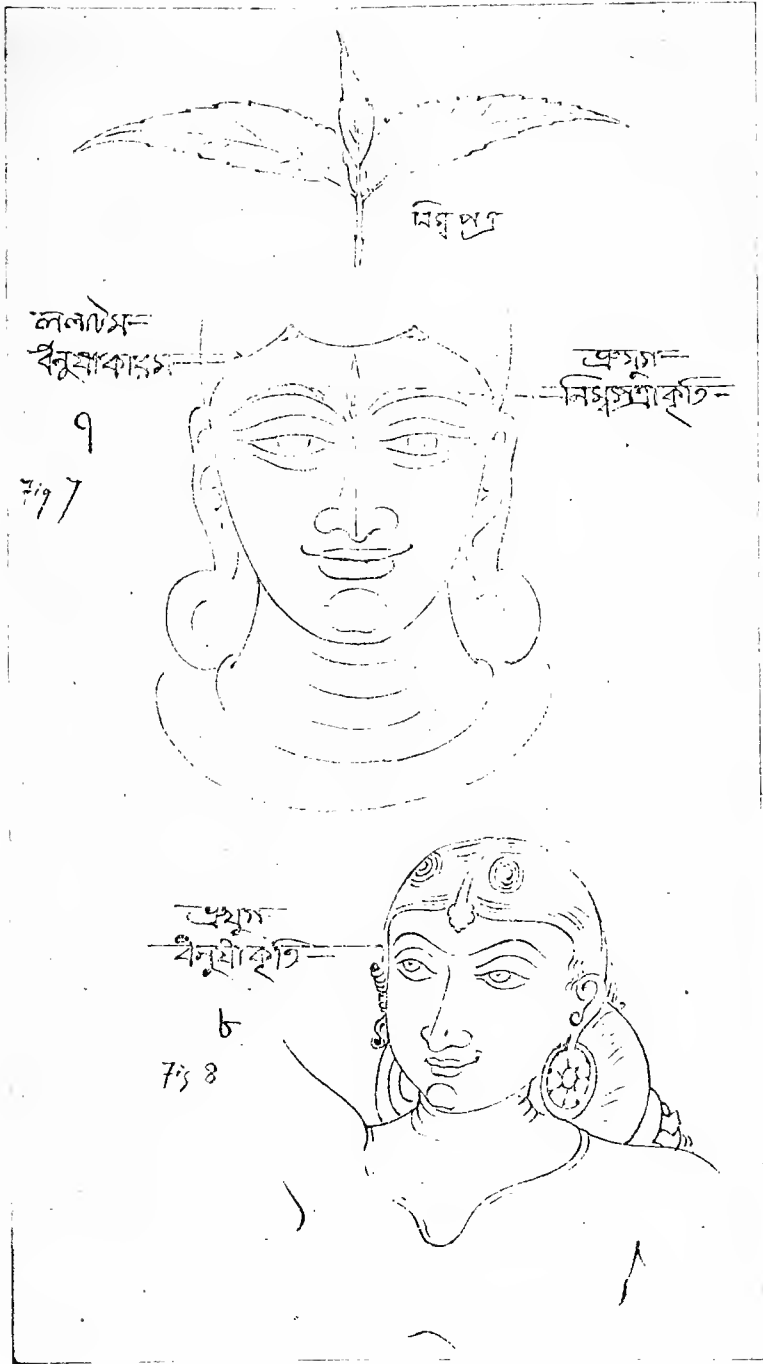 নিম্ব পত্র
ললাটম্—
ধনুষাকারম্
ভ্রূযুগ—
নিম্বপত্রাকৃতি—
৭
Fig 7
ভ্রূযুগ
ধনুষাকৃতি—
৮
Fig 8